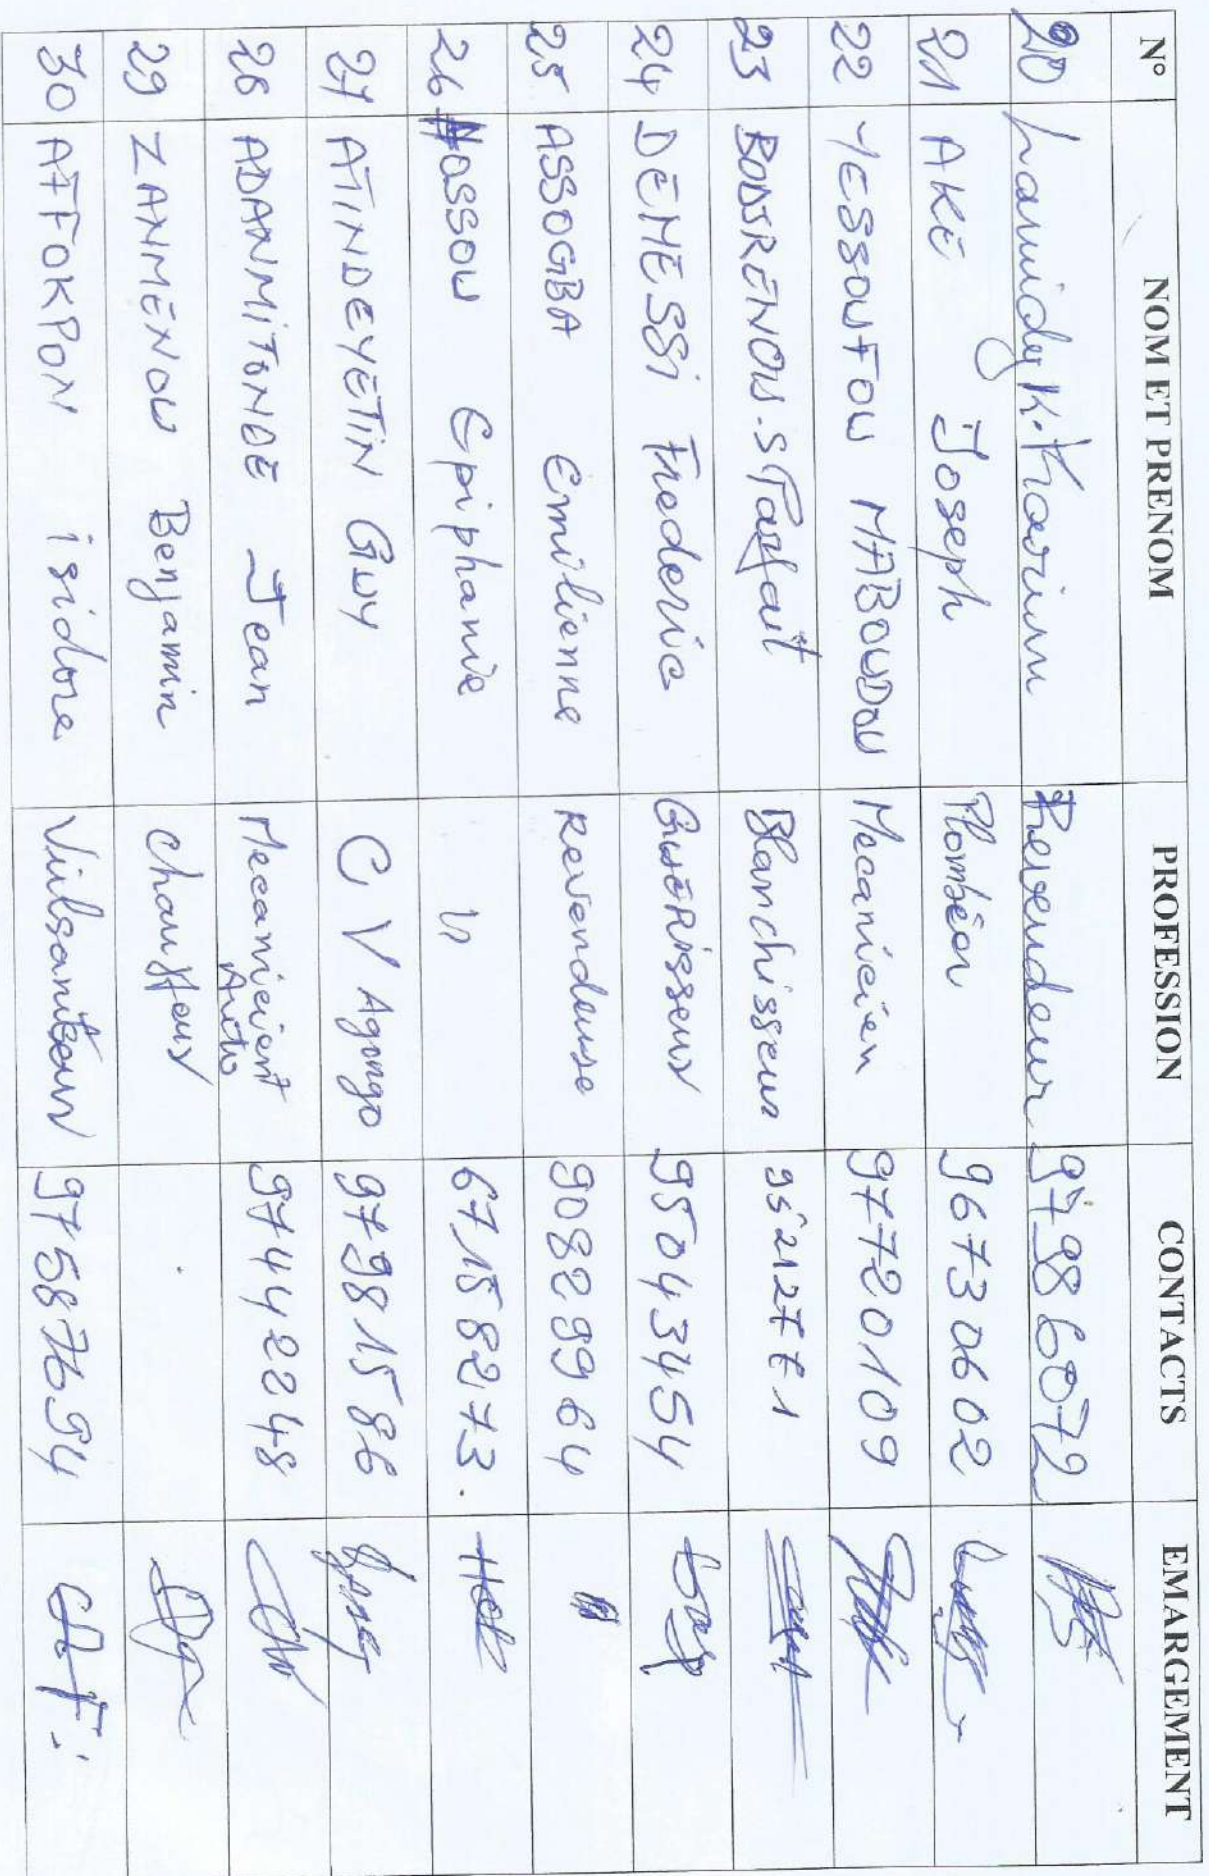 N° NOM ET PRENOM PROFESSION CONTACTS EMARGEMENT
20 Lamidy K. Karim Revendeur 97986072
21 AKE Joseph Plombéor 96730602
22 YESSOUFOU MABOUDOU Mecanicien 97720109
23 BODJRENOU.S Parfait Blanchisseur
24 DEMESSi Frederic GuERisseur 95043454
25 ASSOGBA Emilienne Revendeuse 90829964
26 Hossou Epiphanie 67158273.
27 ATINDEYETIN Guy C V Agongo 97981586
28 ADANMiTONDE Jean Mecanicient Auto 97442248
29 ZANMENOU Benjamin chauffeur
30 AFFOKPON isidore Vulsanitseur 97587694